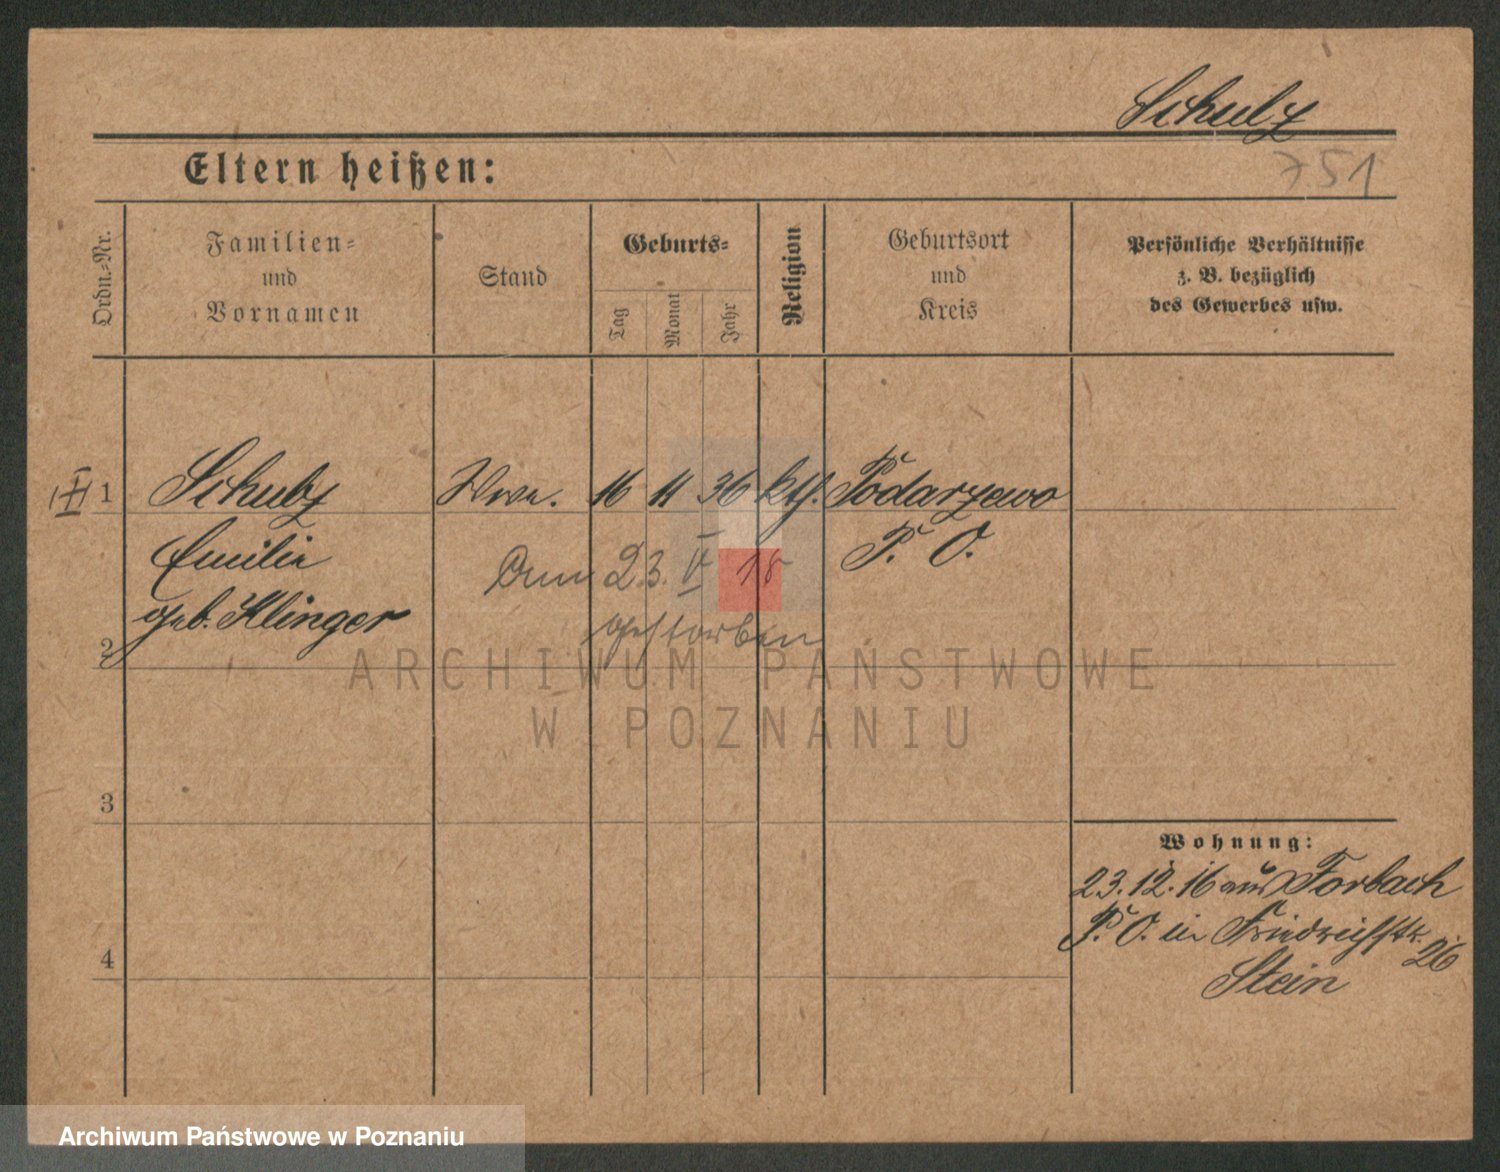 Schulz
751
Eltern heißen:
Ordn.-Nr.
Familien-
und
Vornamen
Stand
Geburts-
Tag
Monat
Jahr
Religion
Geburtsort
und
Kreis
Persönliche Verhältnisse
z. B. bezüglich
des Gewerbes usw.
1 Schulz Wwe. 16 11 36 kth. Podarzewo
Emilie P. O.
geb. Klinger
Am 23. V 18
gestorben
2
3
4
Wohnung:
23.12.16 aus Forbach
P. O. in Friedrichstr. 26
Stein
ARCHIWUM PAŃSTWOWE
W POZNANIU
Archiwum Państwowe w Poznaniu